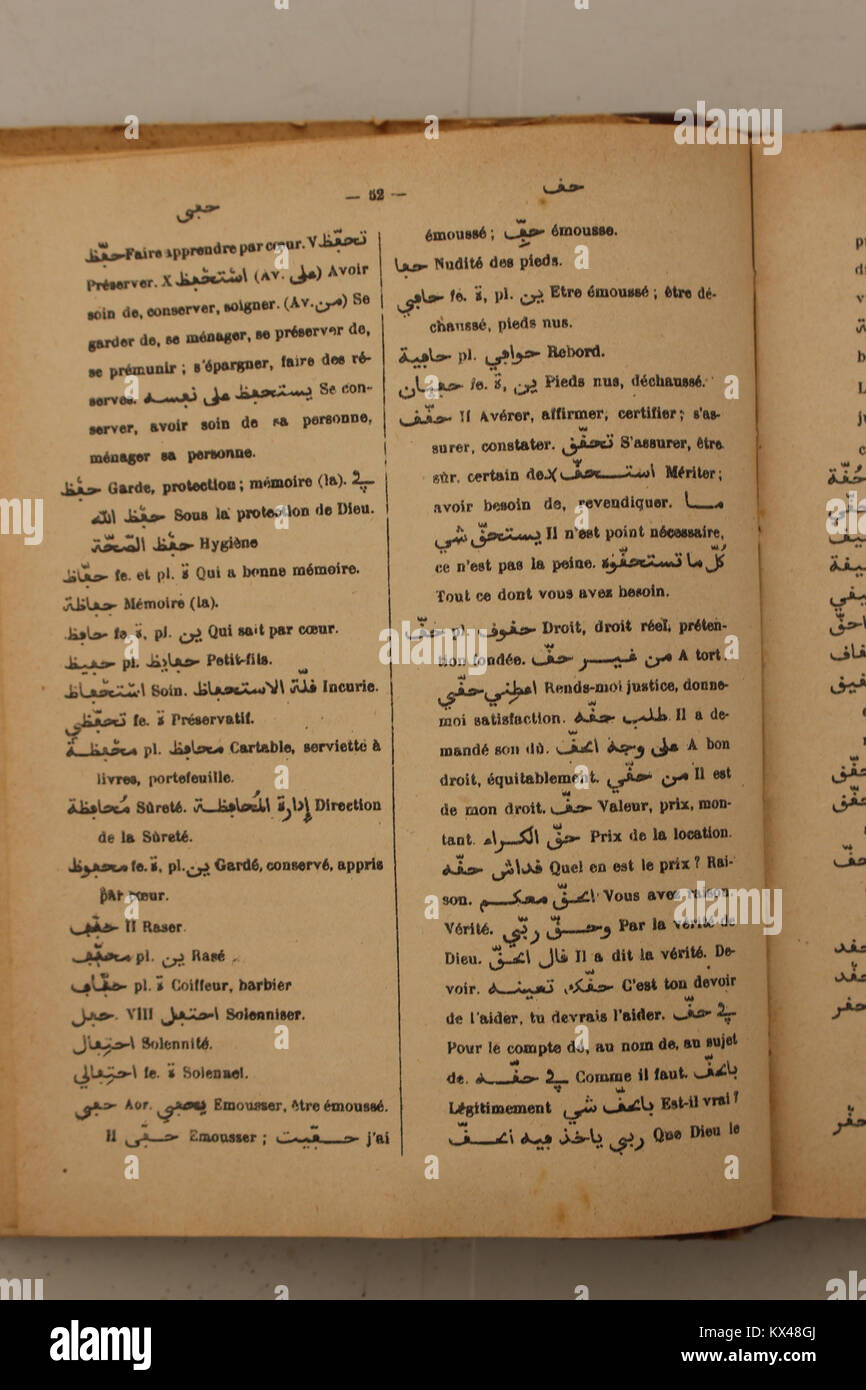 حفى — 52 — حق
حفّظ Faire apprendre par cœur. V تحفّظ
Préserver. X استحفظ (Av. على) Avoir
soin de, conserver, soigner. (Av. من) Se
garder de, se ménager, se préserver de,
se prémunir ; s'épargner, faire des ré-
serves. يستحفظ على نفسه Se con-
server, avoir soin de sa personne,
ménager sa personne.
حفظ Garde, protection ; mémoire (la). في
حفظ الله Sous la protection de Dieu.
حفظ الصّحّة Hygiène
حفّاظ fe. et pl. ة Qui a bonne mémoire.
حفاظة Mémoire (la).
حافظ fe. ة, pl. ين Qui sait par cœur.
حفيظ pl. حفايظ Petit-fils.
استحفاظ Soin. قلّة الاستحفاظ Incurie.
تحفّظي fe. ة Préservatif.
محفظة pl. محافظ Cartable, serviette à
livres, portefeuille.
محافظة Sûreté. إدارة المحافظة Direction
de la Sûreté.
محفوظ fe. ة, pl. ين Gardé, conservé, appris
par cœur.
حفّف II Raser.
محفّف pl. ين Rasé
حفّاف pl. ة Coiffeur, barbier
حفل. VIII احتفل Solenniser.
احتفال Solennité.
احتفالي fe. ة Solennel.
حفي Aor. يحفي Emousser, être émoussé.
II حفّى Emousser ; حفّيت j'ai
émoussé ; حفّ émousse.
حفا Nudité des pieds.
حافي fe. ة, pl. ين Etre émoussé ; être dé-
chaussé, pieds nus.
حافية pl. حوافي Rebord.
حفيان fe. ة, ين Pieds nus, déchaussé.
حقّق II Avérer, affirmer, certifier ; s'as-
surer, constater. تحقّق S'assurer, être
sûr, certain de. X استحقّ Mériter ;
avoir besoin de, revendiquer. ما
يستحقّ شي Il n'est point nécessaire,
ce n'est pas la peine. كُلّ ما تستحقّوه
Tout ce dont vous avez besoin.
حقّ pl. حقوق Droit, droit réel, préten-
tion fondée. من غير حقّ A tort.
اعطني حقّي Rends-moi justice, donne-
moi satisfaction. طلب حقّه Il a de-
mandé son dû. على وجه الحقّ A bon
droit, équitablement. من حقّي Il est
de mon droit. حقّ Valeur, prix, mon-
tant. حقّ الكراء Prix de la location.
قدّاش حقّه Quel en est le prix ? Rai-
son. الحقّ معكم Vous avez raison.
Vérité. وحقّ ربّي Par la vérité de
Dieu. قال الحقّ Il a dit la vérité. De-
voir. حقّك تعينه C'est ton devoir
de l'aider, tu devrais l'aider. في حقّ
Pour le compte de, au nom de, au sujet
de. في حقّه Comme il faut. بالحقّ
Légitimement بالحقّ شي Est-il vrai ?
ربي ياخذ فيه الحقّ Que Dieu le
alamy
alamy
Image ID: KX48GJ
www.alamy.com